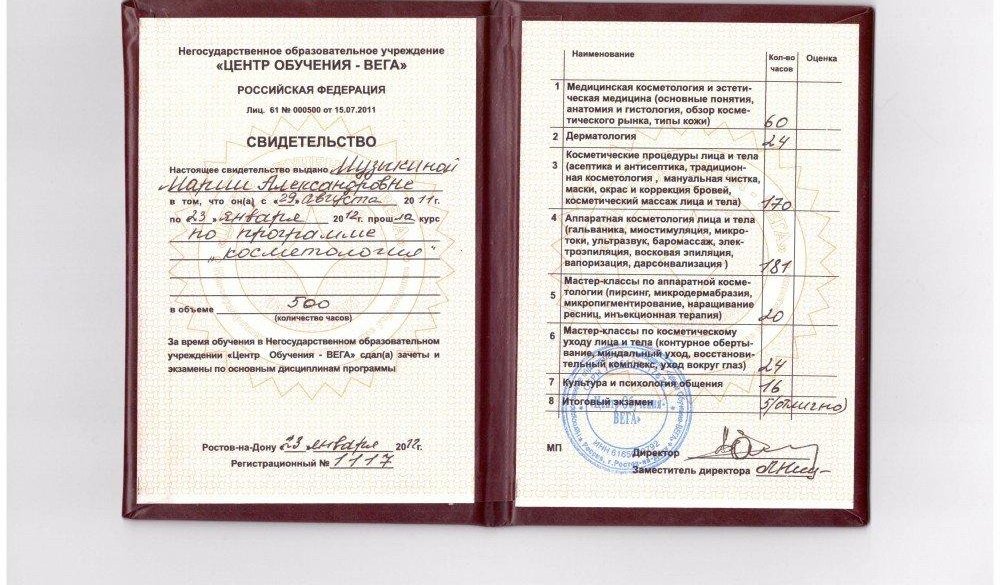 Негосударственное образовательное учреждение
«ЦЕНТР ОБУЧЕНИЯ - ВЕГА»
РОССИЙСКАЯ ФЕДЕРАЦИЯ
Лиц. 61 № 000500 от 15.07.2011
СВИДЕТЕЛЬСТВО
Настоящее свидетельство выдано Музыкиной
Марии Александровне
в том, что он(а) с «29» августа 2011г.
по «23» января 2012г. прошла курс
по программе
„косметология“
в объеме 500
(количество часов)
За время обучения в Негосударственном образовательном
учреждении «Центр Обучения - ВЕГА» сдал(а) зачеты и
экзамены по основным дисциплинам программы
Ростов-на-Дону 23 января 2012г.
Регистрационный № 1117
Наименование Кол-во часов Оценка
1 Медицинская косметология и эстети-
ческая медицина (основные понятия,
анатомия и гистология, обзор косме-
тического рынка, типы кожи) 60
2 Дерматология 24
3 Косметические процедуры лица и тела
(асептика и антисептика, традицион-
ная косметология , мануальная чистка,
маски, окрас и коррекция бровей,
косметический массаж лица и тела) 170
4 Аппаратная косметология лица и тела
(гальваника, миостимуляция, микро-
токи, ультразвук, баромассаж, элек-
троэпиляция, восковая эпиляция,
вапоризация, дарсонвализация ) 181
5 Мастер-классы по аппаратной косме-
тологии (пирсинг, микродермабразия,
микропигментирование, наращивание
ресниц, инъекционная терапия) 20
6 Мастер-классы по косметическому
уходу лица и тела (контурное оберты-
вание, миндальный уход, восстанови-
тельный комплекс, уход вокруг глаз) 24
7 Культура и психология общения 16
8 Итоговый экзамен 5(отлично)
«Центр Обучения-
ВЕГА»
МП Директор
Заместитель директора